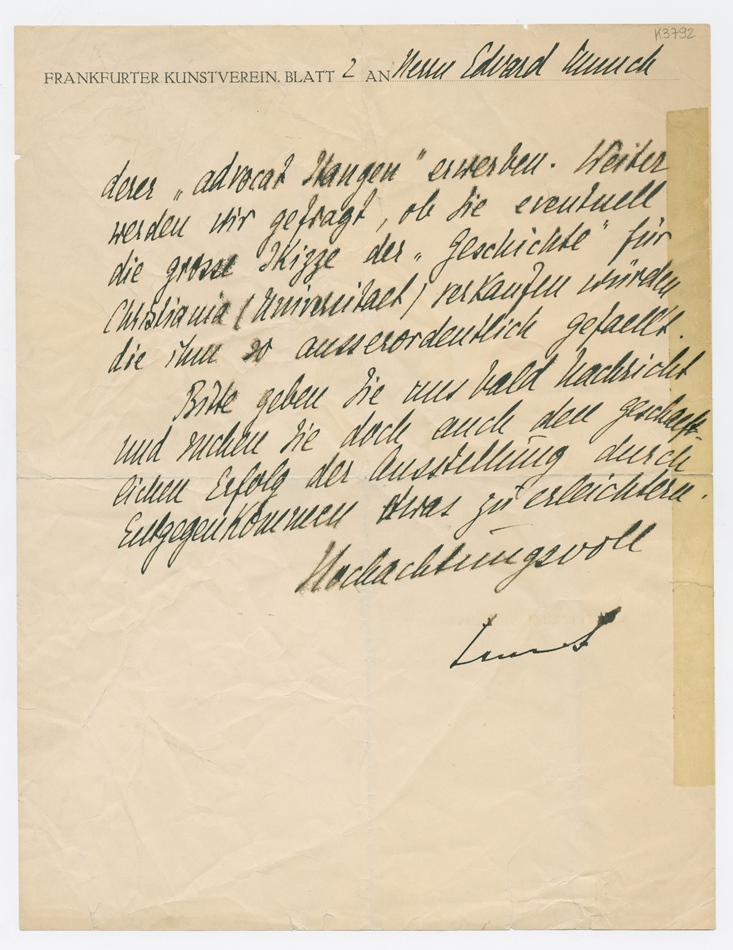 K3792
FRANKFURTER KUNSTVEREIN. BLATT 2 AN Herrn Edvard Munch
derer „advocat Stangen" erwerben. Weiter
werden wir gefragt, ob Sie eventuell
die grosse Skizze der „Geschichte" für
Christiania (Universitaet) verkaufen würden
die ihm so ausserordentlich gefaellt.
Bitte geben Sie uns bald Nachricht
und suchen Sie doch auch den geschaeft-
lichen Erfolg der Ausstellung durch
Entgegenkommen etwas zu erleichtern.
Hochachtungsvoll